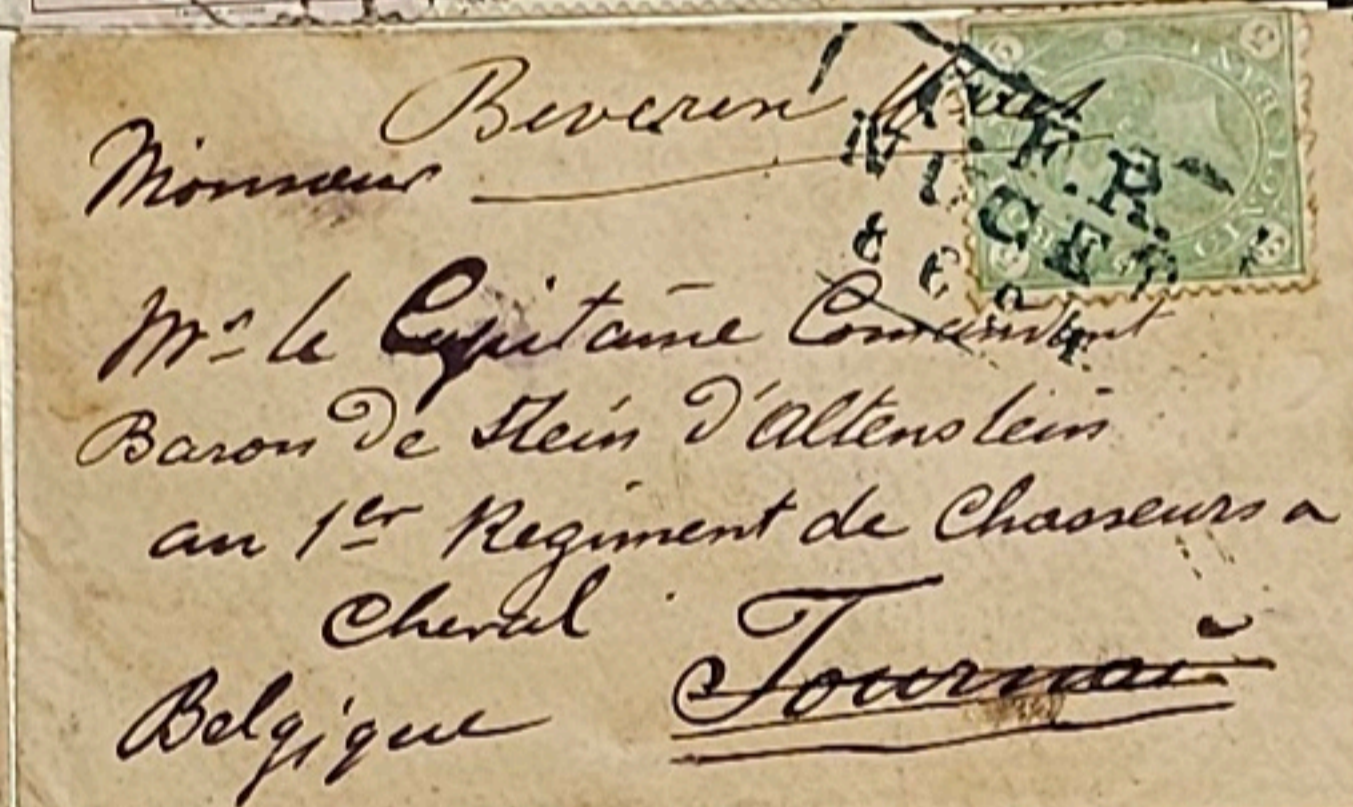 Beveren Waes
Monsieur
Mr le Capitaine Comandant
Baron de Stein d'Altenstein
au 1er Regiment de Chasseurs a
Cheval
Tournai
Belgique